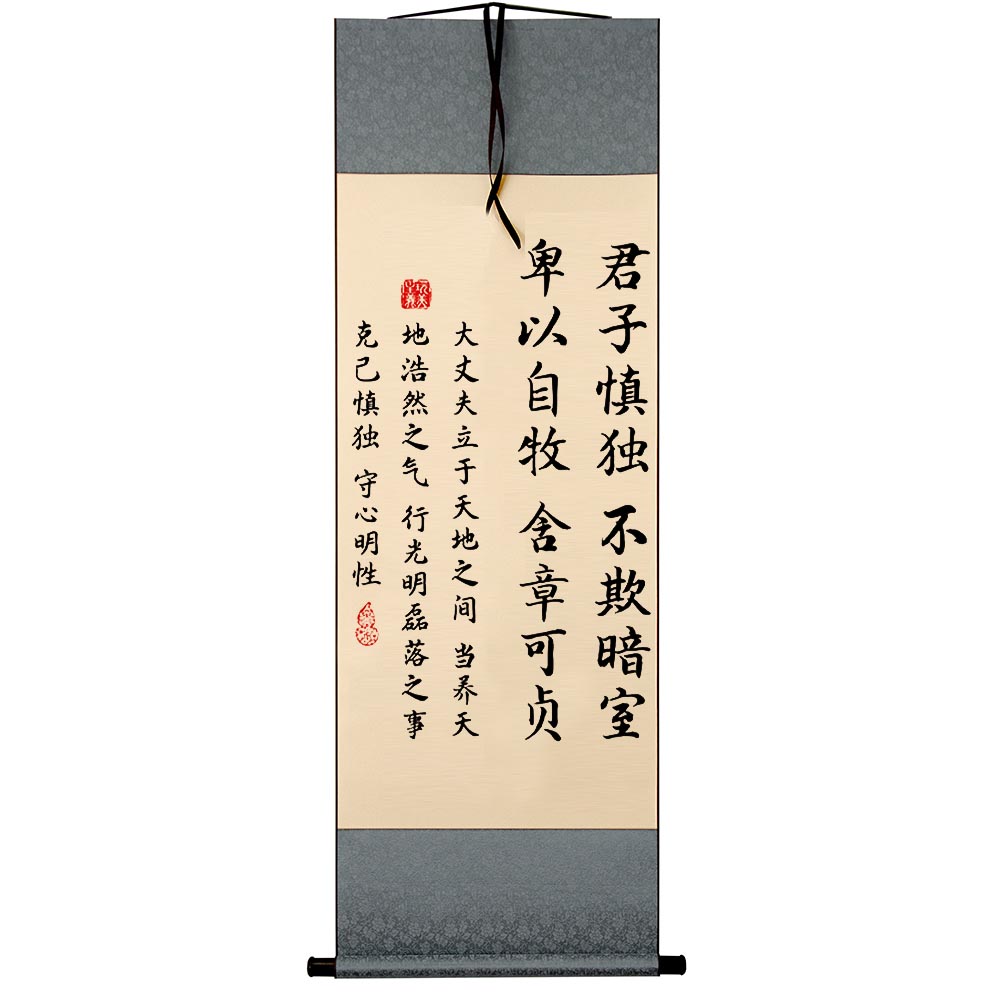 君子慎独 不欺暗室
卑以自牧 舍章可贞
大丈夫立于天地之间 当养天
地浩然之气 行光明磊落之事
克己慎独 守心明性